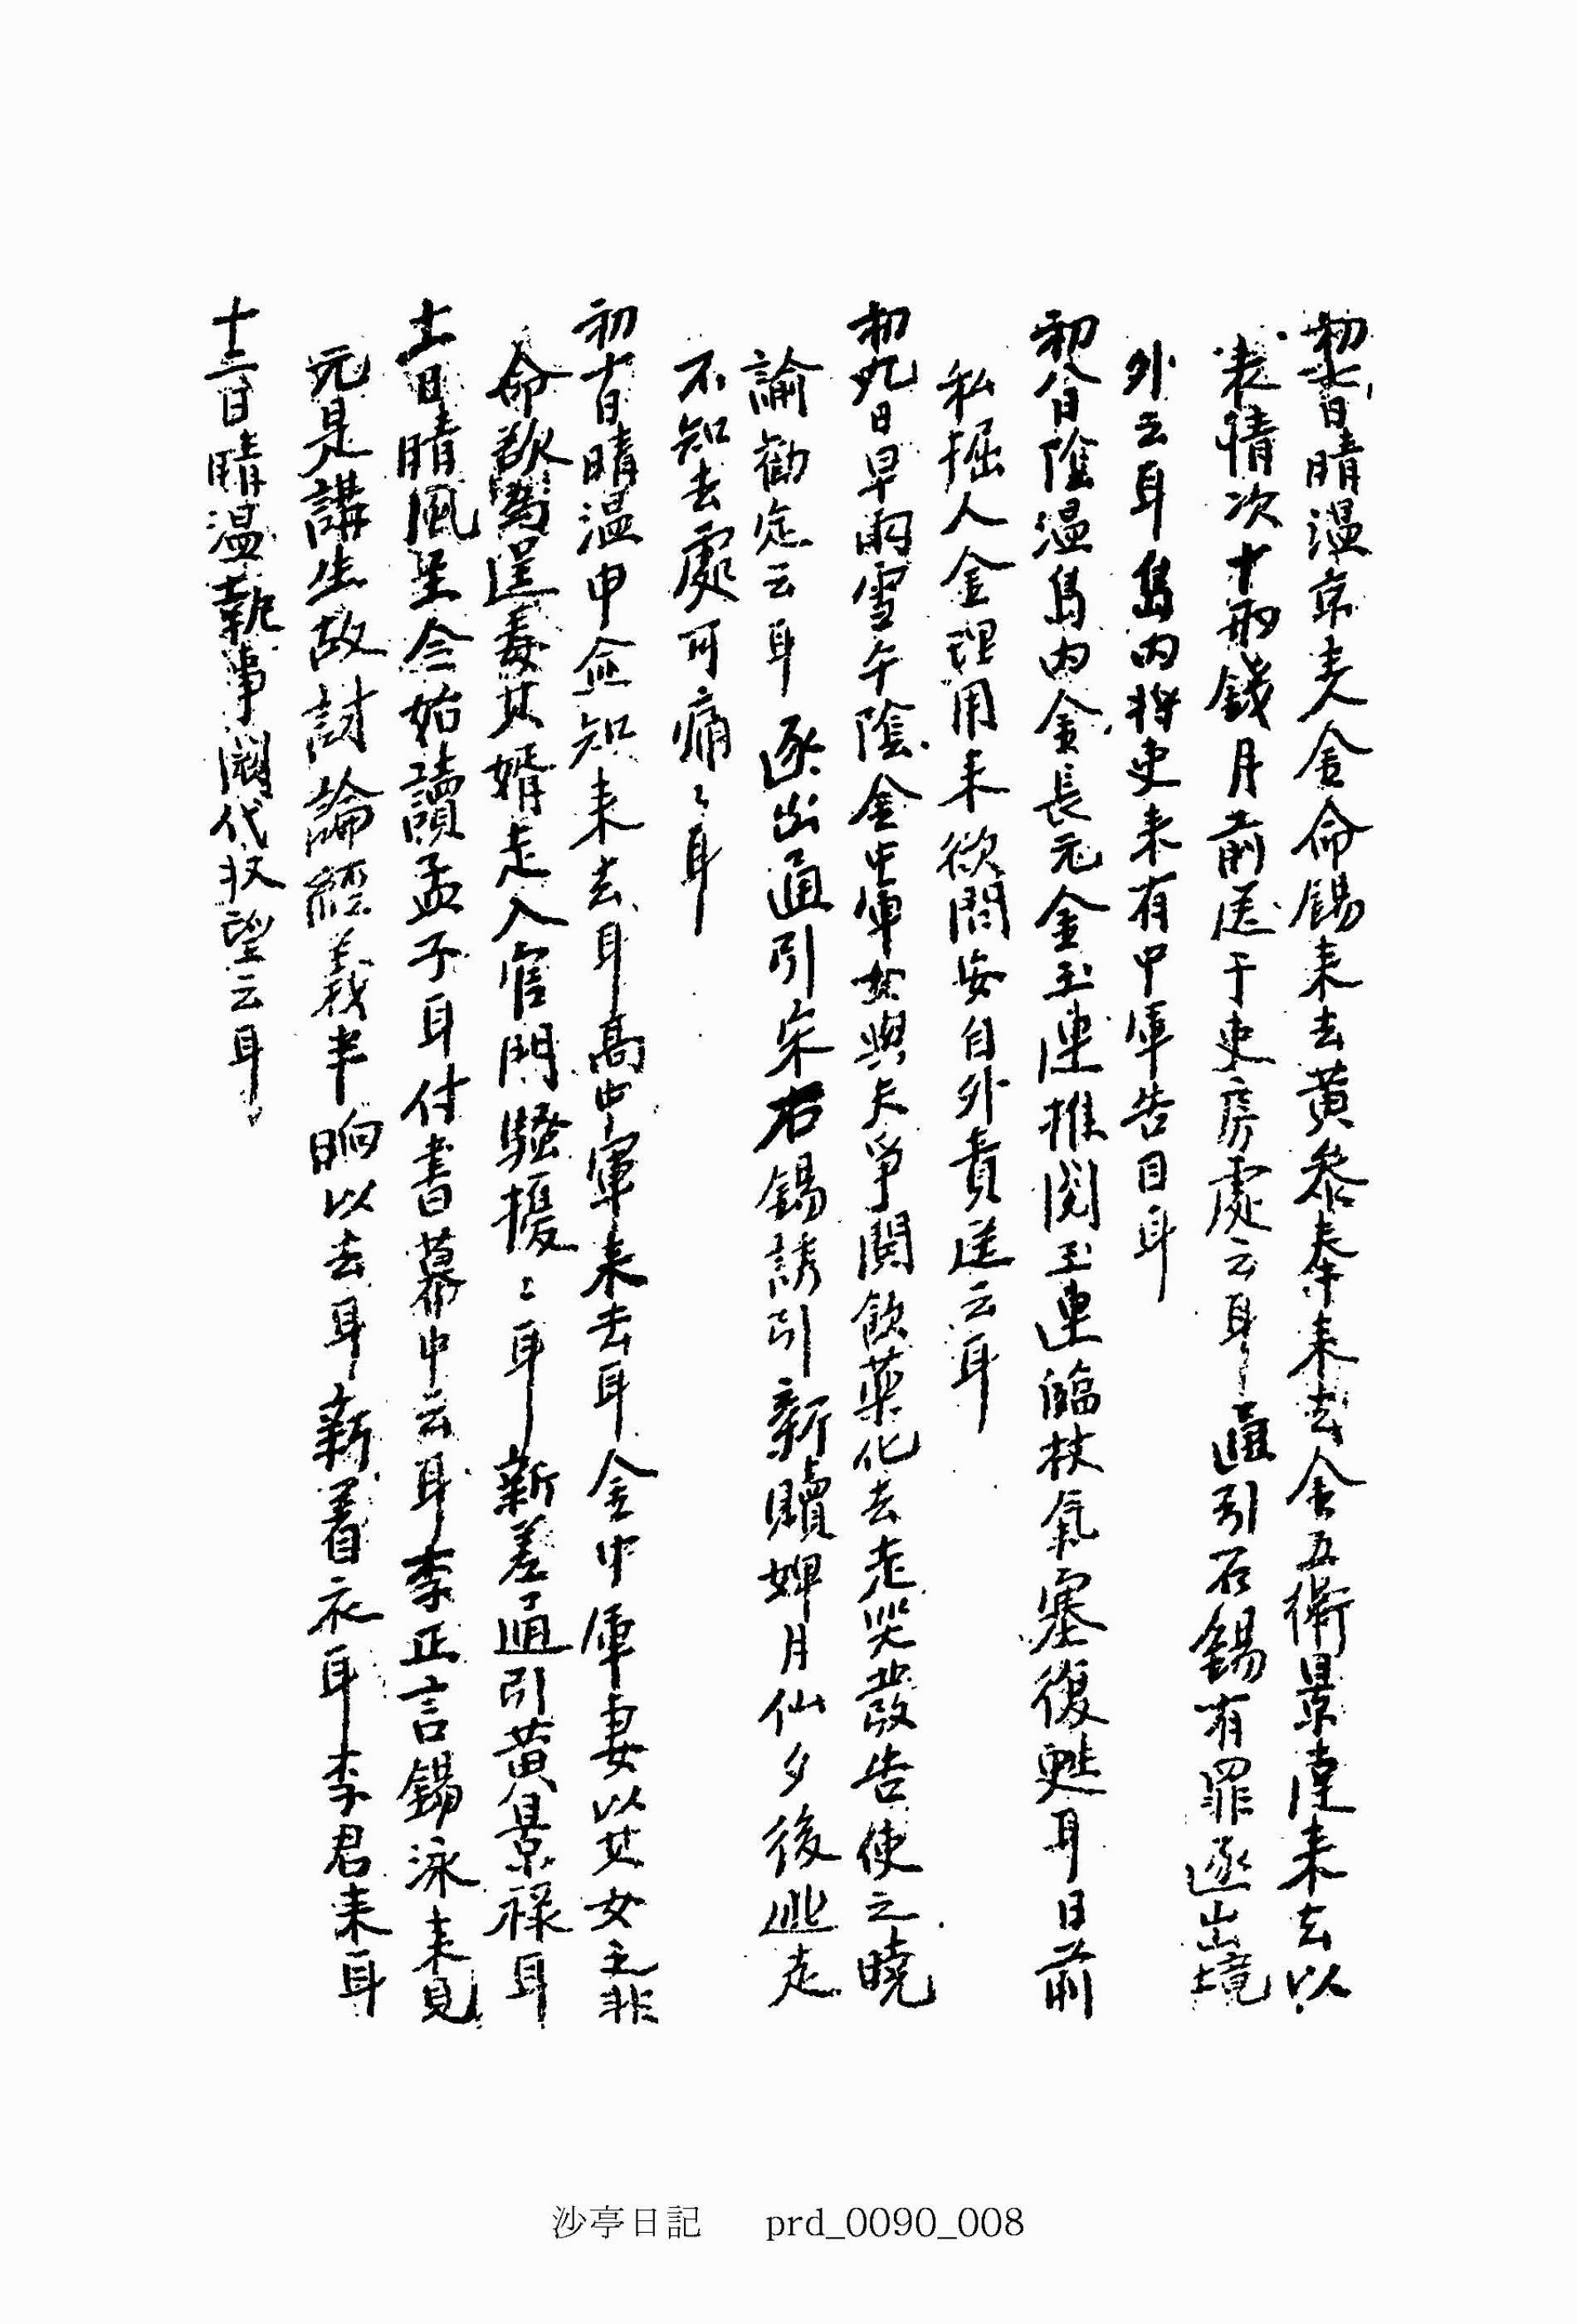 初七日晴温京夫人金命錫来去黃參奉来去金五衛景達来去以
表情次十朔錢月前送于吏房處云耳通引石錫有罪逐出境
外云耳島内将吏来有中軍告目耳
初八日陰温島内金長元金玉連推閱玉連臨杖氣塞復甦耳日前
私掘人金理用来欲問安自外責送云耳
初九日早雨雪午陰金中軍女與夫爭鬨飲藥化去走哭發告使之曉
諭勸定云耳逐出通引宋石錫誘引新贖婢月仙夕後逃走
不知去處可痛〻耳
初十日晴温申僉知来去耳高中軍来去耳金中軍妻以其女之非
命欲為逞毒其婿走入官門騷擾〻耳新差通引黃景祿耳
十一日晴風呈令始讀孟子耳付書幕中云耳李正言錫泳来見
元是講生故討論經義半晌以去耳新着衣耳李君来耳
十二日晴温執事闕代扠望云耳